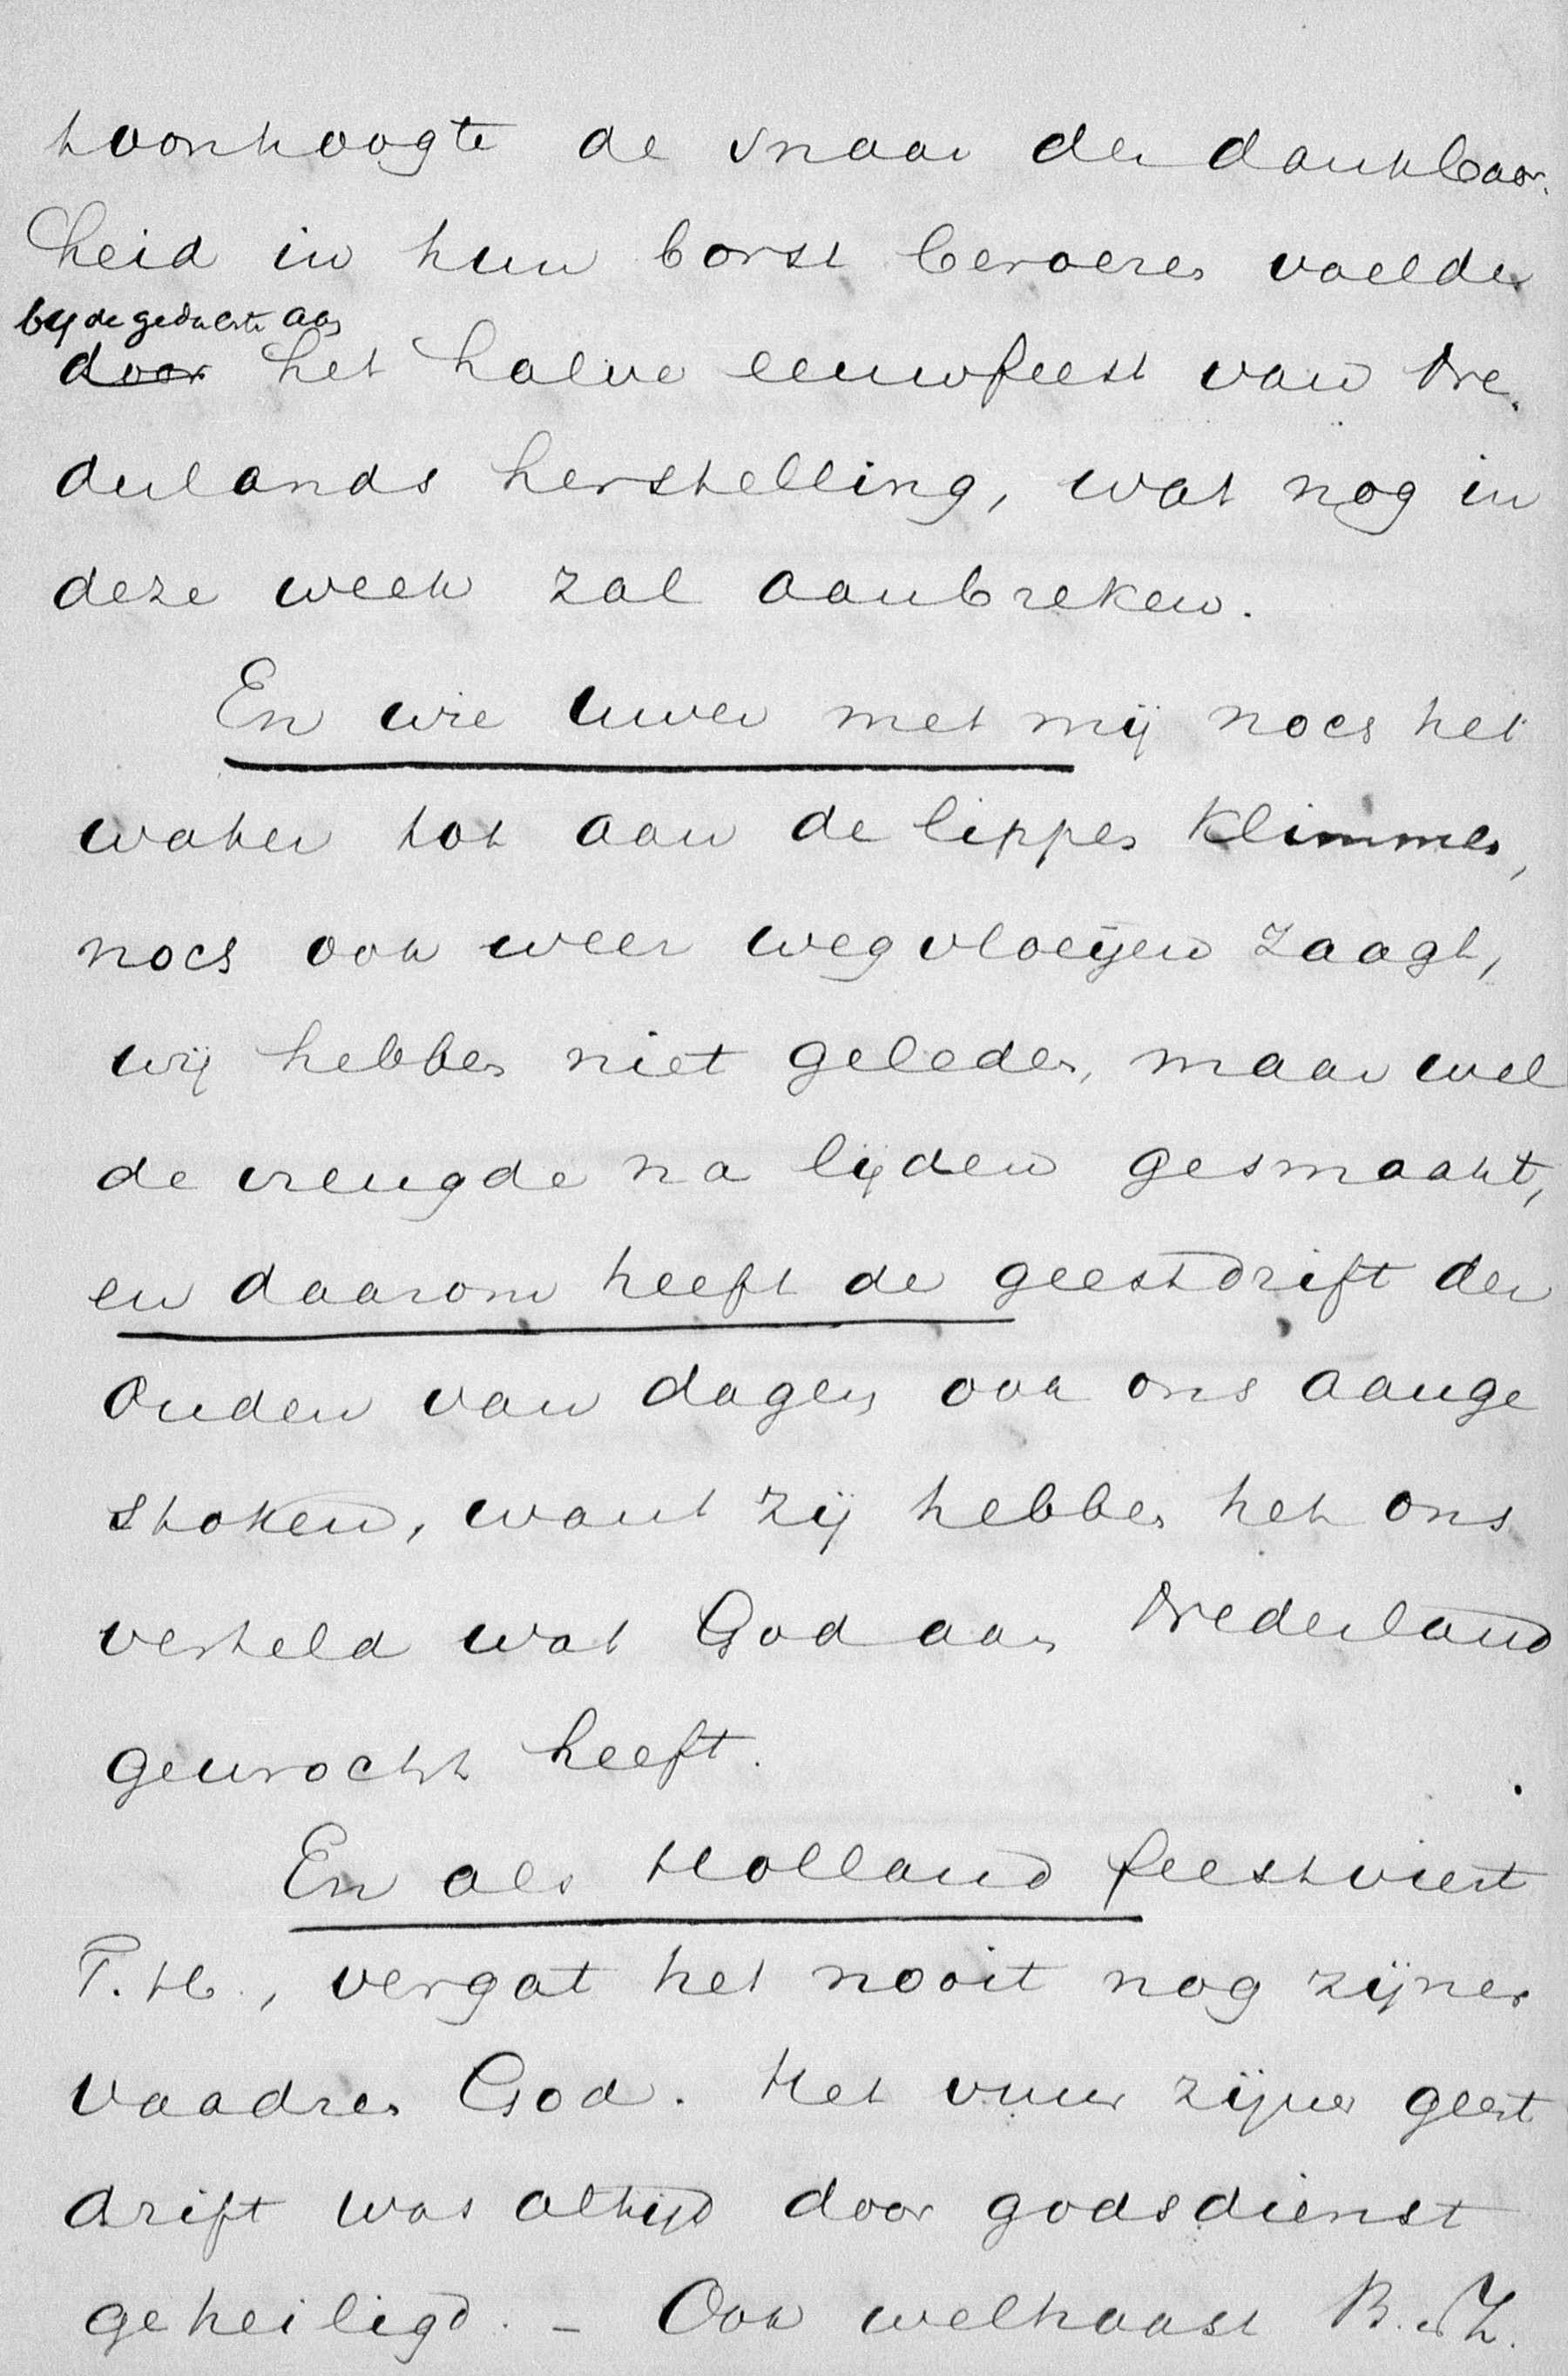 toonhoogte de snaar der dankbaar-
heid in hun borst beroeren voelden
bij de gedachte aan
door het halve eeuwfeest van Ne-
derlands herstelling, wat nog in
deze week zal aanbreken.
En wie uwer met mij noch het
water tot aan de lippen klimmen,
noch ook weer wegvloeijen zaagt,
wij hebben niet geleden, maar wel
de vreugde na lijden gesmaakt,
en daarom heeft de geestdrift der
ouden van dagen ook ons aange
stoken, want zij hebben het ons
verteld wat God aan Nederland
gewrocht heeft.
En als Holland feestviert
T. H., vergat het nooit nog zijner
vaadren God. Het vuur zijner geest
drift was altijd door godsdienst
geheiligd. – Ook welhaast